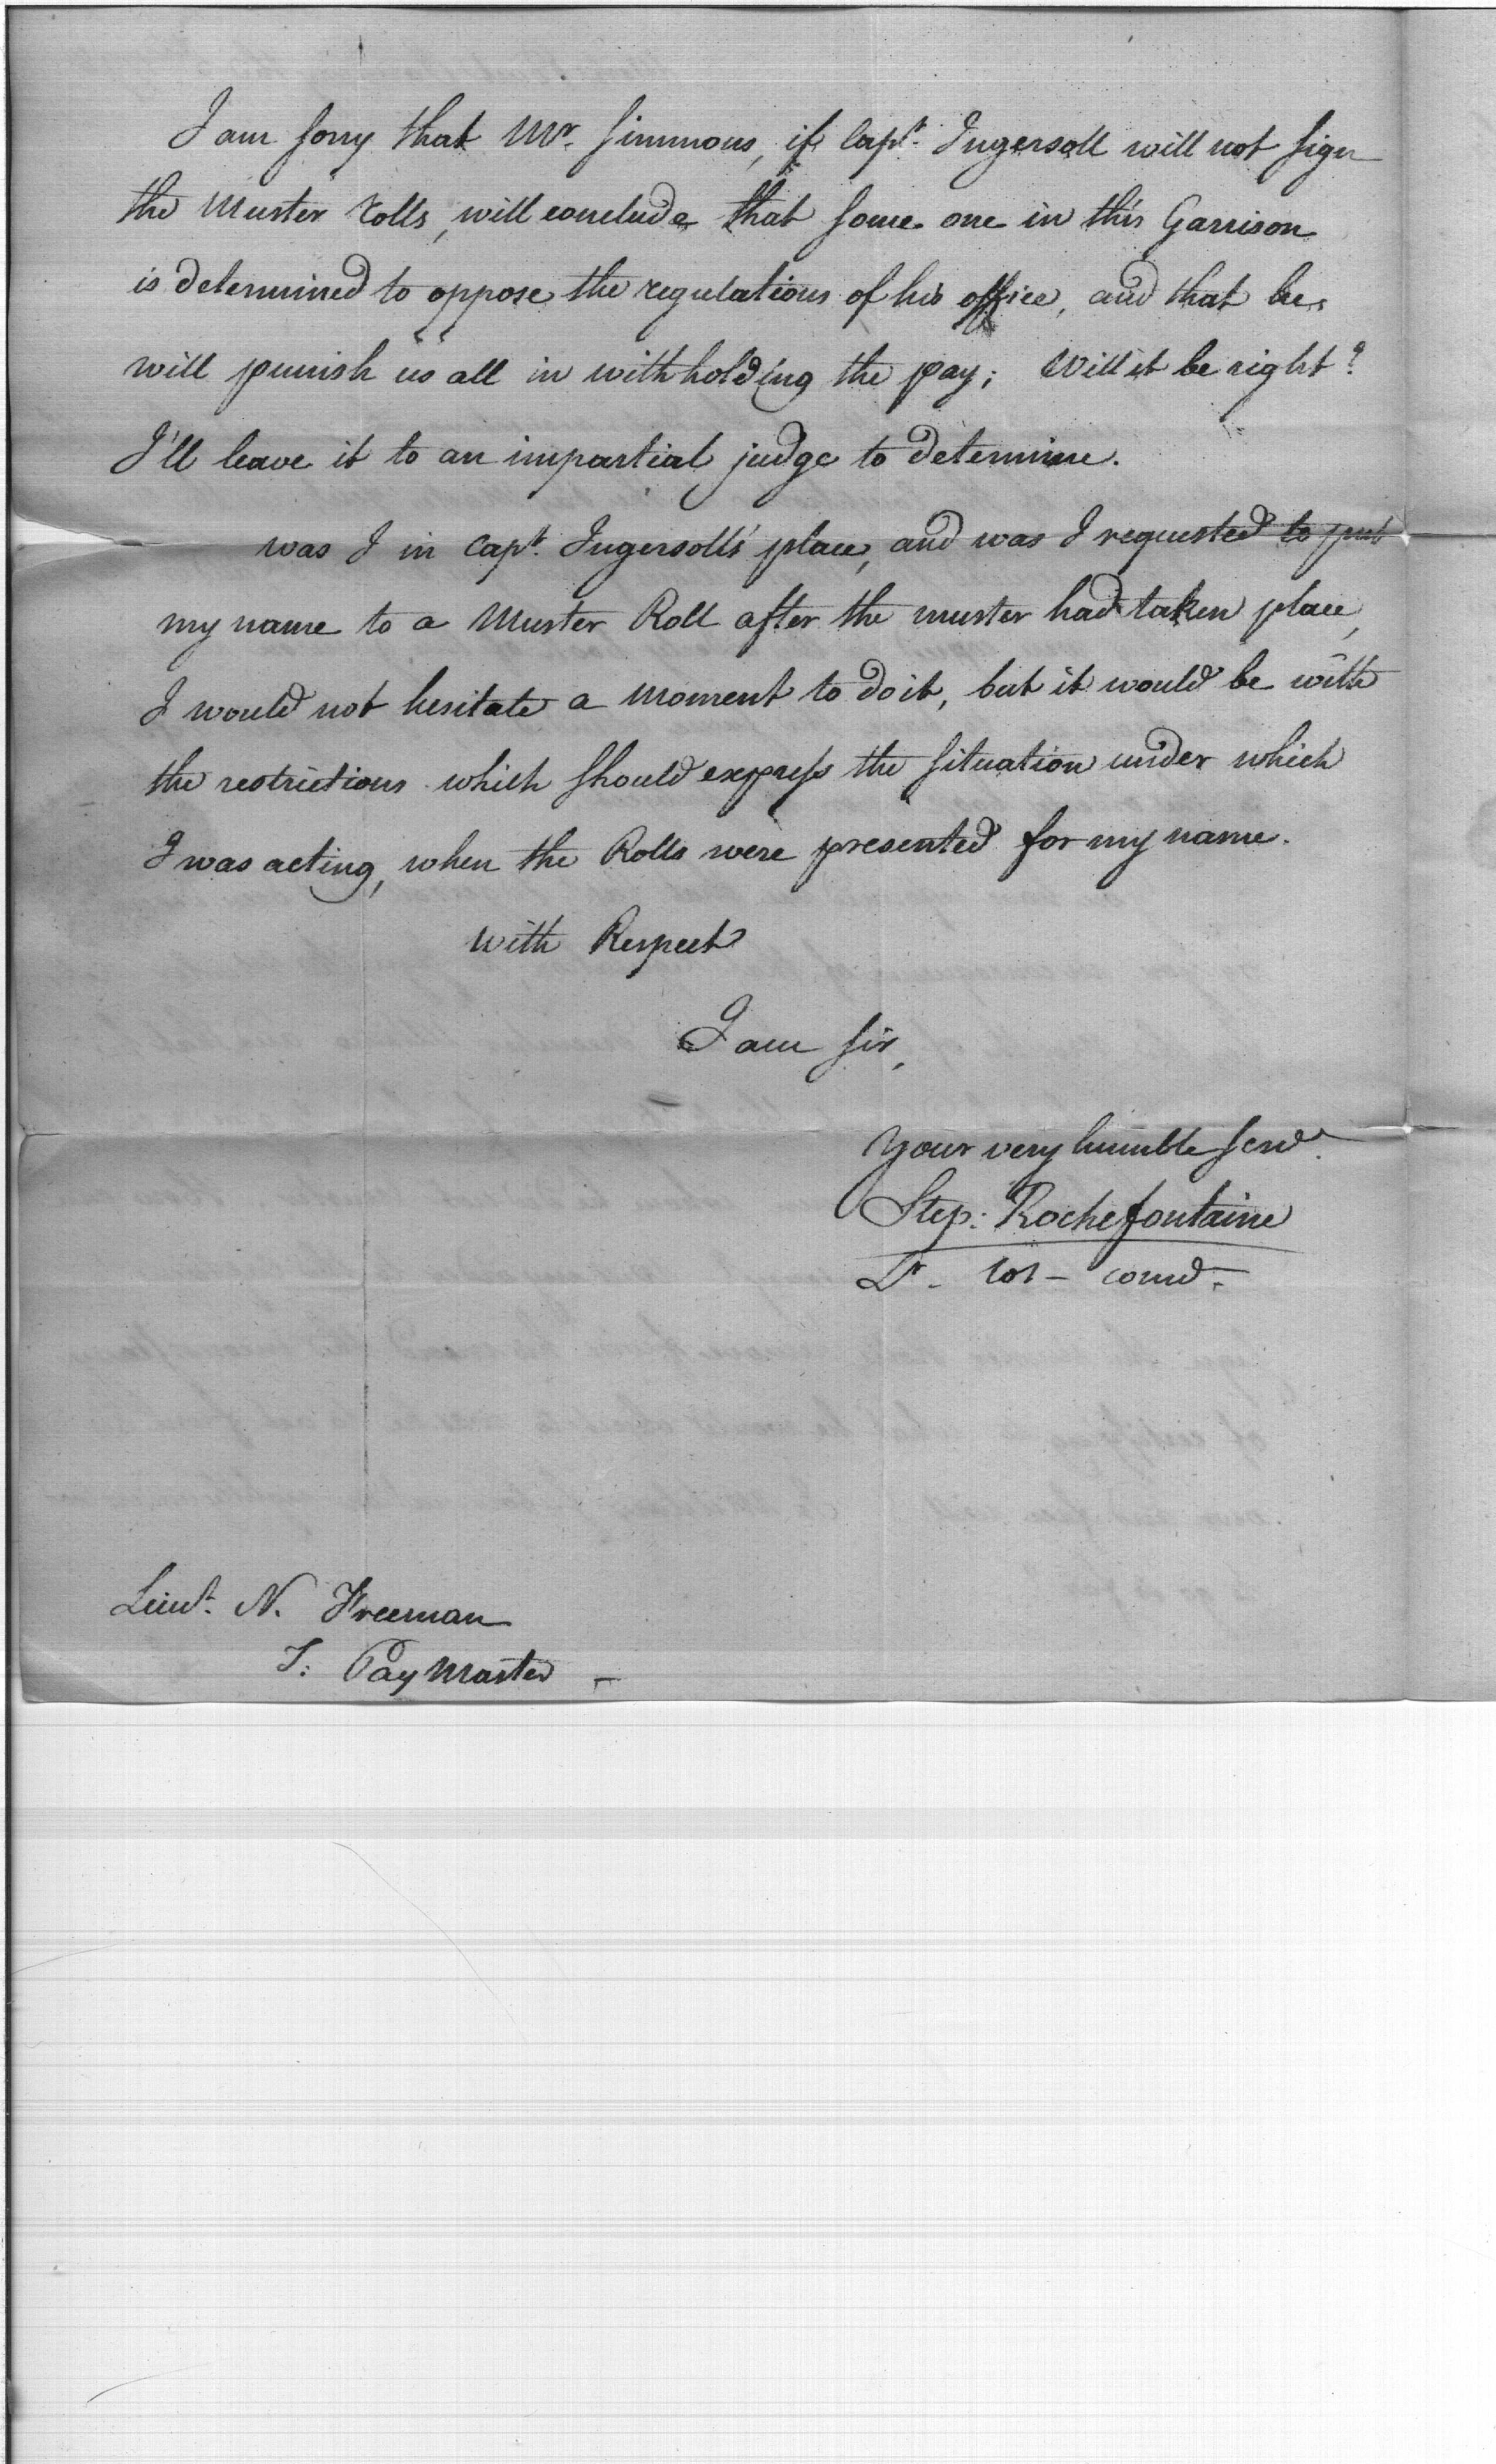 I am sorry that Mr. Simmons, if Capt. Ingersoll will not sign
the Muster rolls, will conclude that some one in this Garrison
is determined to oppose the regulations of his office, and that he
will punish us all in withholding the pay; Will it be right?
I'll leave it to an impartial judge to determine.
was I in Capt. Ingersoll's place, and was I requested to put
my name to a Muster Roll after the muster had taken place,
I would not hesitate a moment to do it, but it would be with
the restrictions which should express the situation under which
I was acting, when the Rolls were presented for my name.
with Respect
I am sir,
your very humble servt.
Step: Rochefontaine
Lt. Col - comd.
Lieut. N. Freeman
T: Pay Master -